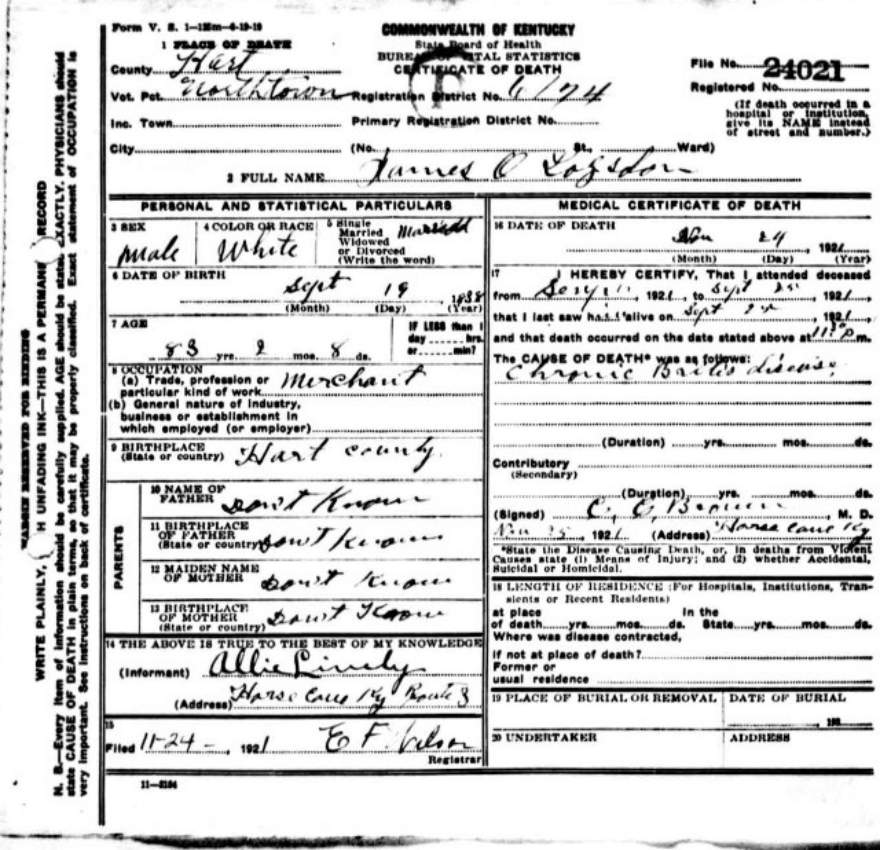 Form V. S. 1-1
COMMONWEALTH OF KENTUCKY
State Board of Health
BUREAU OF VITAL STATISTICS
CERTIFICATE OF DEATH
1 PLACE OF DEATH
County Hart
Vot. Pct. Northtown Registration District No. 6174
Inc. Town Primary Registration District No.
City (No. St., Ward)
File No. 24021
Registered No.
(If death occurred in a
hospital or institution,
give its NAME instead
of street and number.)
2 FULL NAME James O Logsdon
PERSONAL AND STATISTICAL PARTICULARS
3 SEX
male
4 COLOR OR RACE
White
5 Single
Married
Widowed
or Divorced
(Write the word)
Married
6 DATE OF BIRTH
Sept 19, 1838
(Month) (Day) (Year)
7 AGE
83 yrs. 2 mos. 8 ds.
IF LESS than 1
day hrs.
or min?
8 OCCUPATION
(a) Trade, profession or
particular kind of work Merchant
(b) General nature of industry,
business or establishment in
which employed (or employer)
9 BIRTHPLACE
(State or country) Hart county
PARENTS
10 NAME OF
FATHER Dont Know
11 BIRTHPLACE
OF FATHER
(State or country) Dont Know
12 MAIDEN NAME
OF MOTHER Dont Know
13 BIRTHPLACE
OF MOTHER
(State or country) Dont Know
14 THE ABOVE IS TRUE TO THE BEST OF MY KNOWLEDGE
(Informant) Allie
(Address) Horse Cave Ky Route 3
15
Filed 11-24-, 1921 E F Wilson
Registrar
11-3184
MEDICAL CERTIFICATE OF DEATH
16 DATE OF DEATH
Nov 24, 1921
(Month) (Day) (Year)
17 I HEREBY CERTIFY, That I attended deceased
from 1921, to Sept 1921,
that I last saw alive on Sept 1921,
and that death occurred on the date stated above at m.
The CAUSE OF DEATH* was as follows:
Chronic Brites disease
(Duration) yrs. mos. ds.
Contributory
(Secondary)
(Duration) yrs. mos. ds.
(Signed) C. C. Brown, M. D.
Nov 25, 1921 (Address) Horse Cave Ky
*State the Disease Causing Death, or, in deaths from Violent
Causes state (1) Means of Injury; and (2) whether Accidental,
Suicidal or Homicidal.
18 LENGTH OF RESIDENCE (For Hospitals, Institutions, Tran-
sients or Recent Residents)
at place In the
of death yrs. mos. ds. State yrs. mos. ds.
Where was disease contracted,
if not at place of death?
Former or
usual residence
19 PLACE OF BURIAL OR REMOVAL
DATE OF BURIAL
, 192
20 UNDERTAKER
ADDRESS
MARGIN RESERVED FOR BINDING
WRITE PLAINLY, H UNFADING INK—THIS IS A PERMANE RECORD
N. B.—Every item of information should be carefully supplied. AGE should be state EXACTLY. PHYSICIANS should
state CAUSE OF DEATH in plain terms, so that it may be properly classified. Exact statement of OCCUPATION is
very important. See instructions on back of certificate.